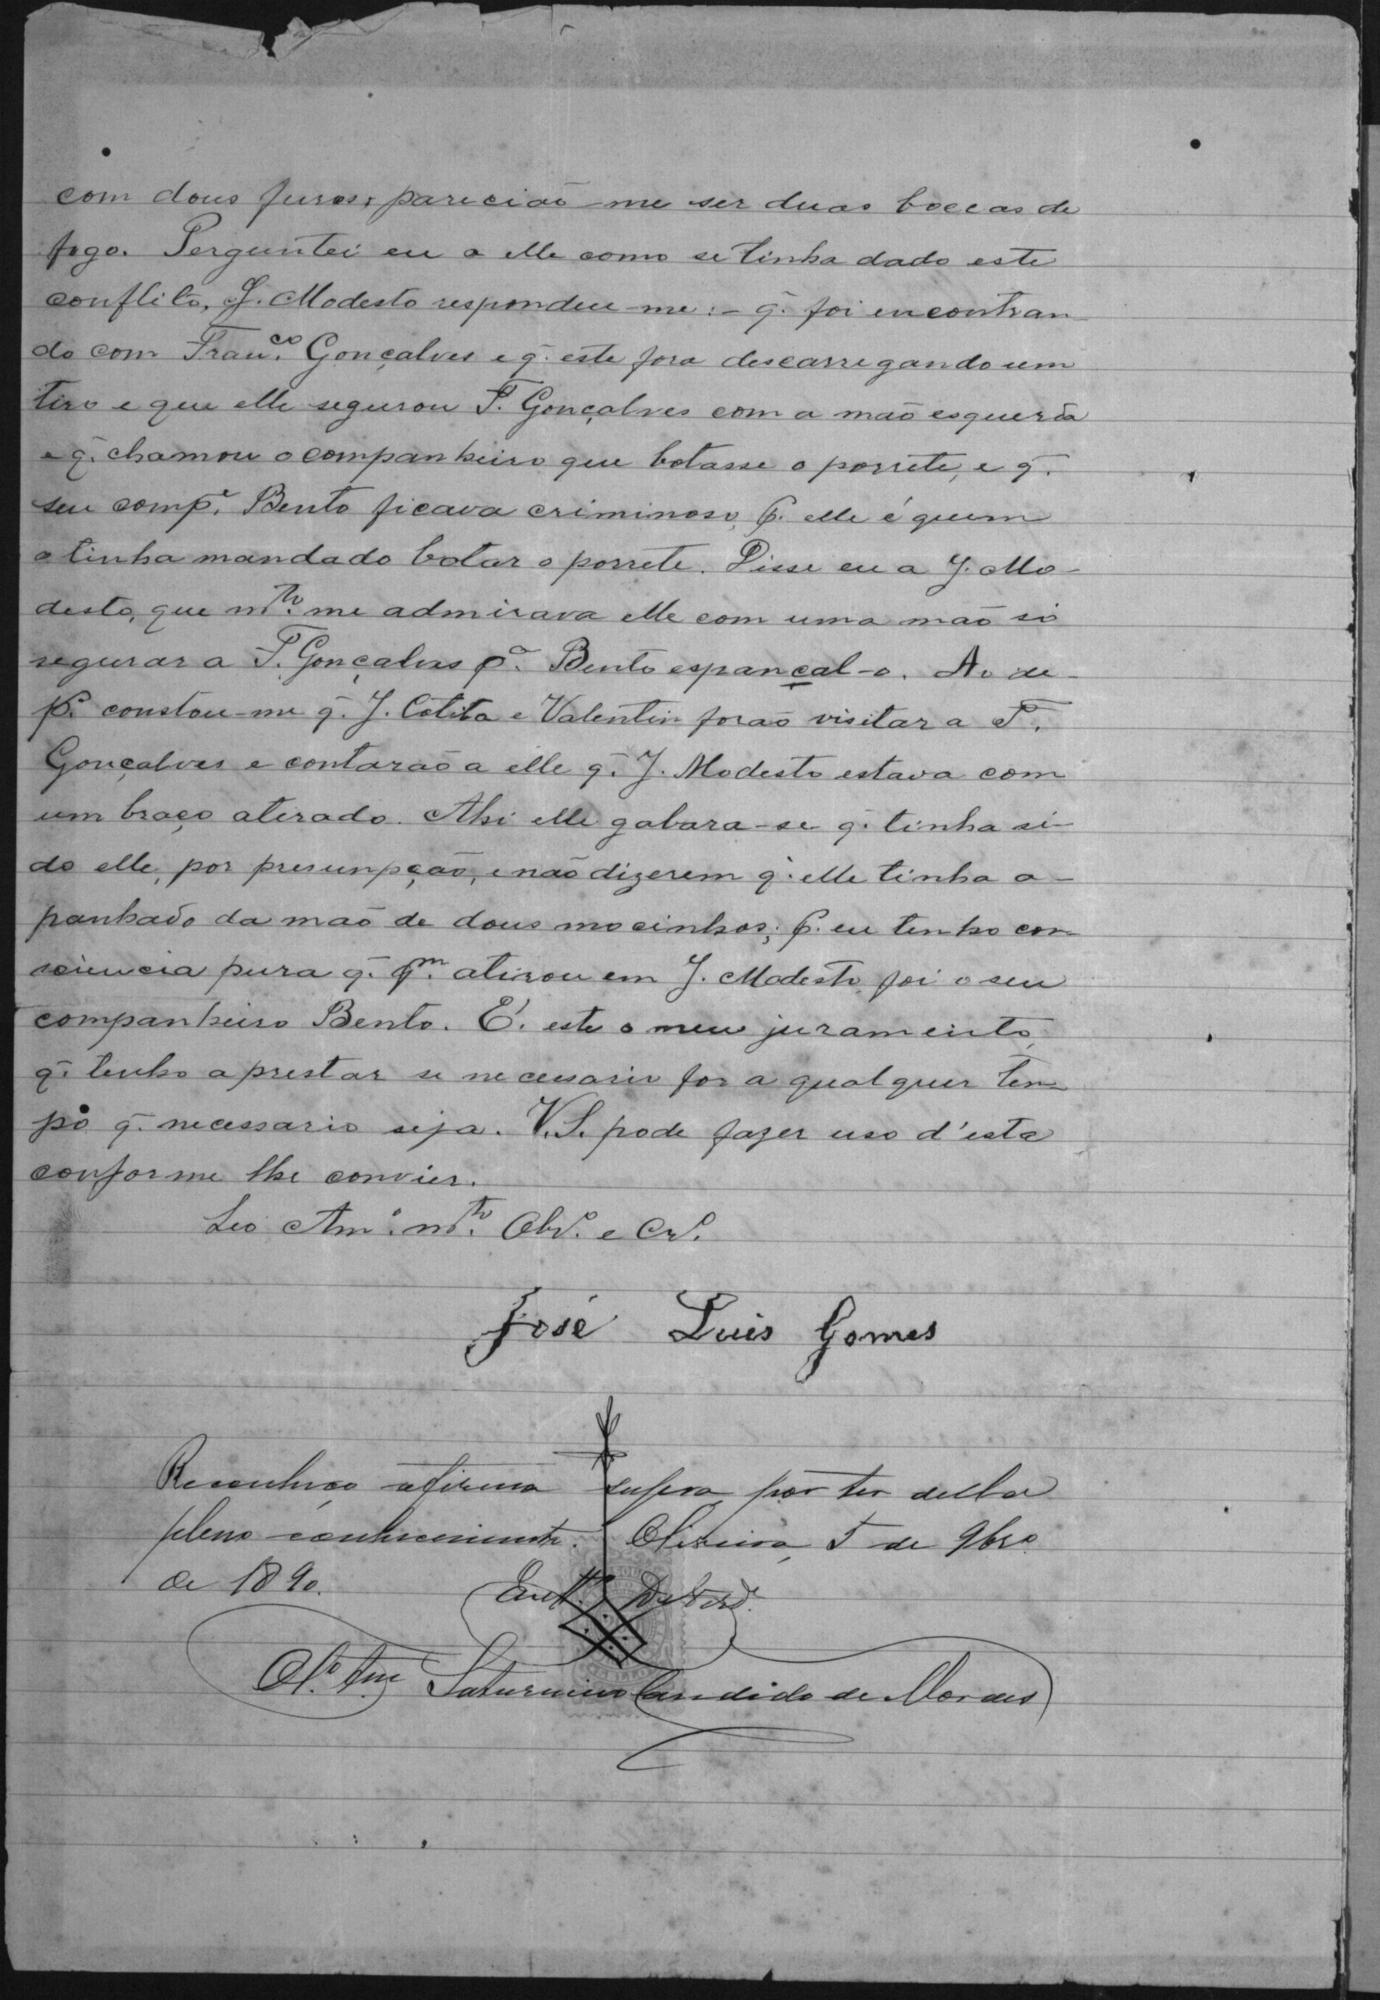 com dous furos; pareciaõ-me ser duas boccas de
fogo. Perguntei eu a elle como se tinha dado este
conflito, J. Modesto respondeu-me: - q̃. foi encontran-
do com Fran.co Gonçalves e q̃. este fora descarregando um
tiro e que elle segurou F. Gonçalves com a maõ esquerda
e q̃. chamou o companheiro que botasse o porrete, e q̃.
seu comp.e Bento ficava criminoso, p. elle é quem
o tinha mandado botar o porrete. Disse eu a J. Mo-
desto, que m.to me admirava elle com uma maõ só
segurar a F. Gonçalves p.a Bento espançal-o. Ao de-
p. constou-me q̃. J. Cotita e Valentin foraõ visitar a F.
Gonçalves e contaraõ a elle q̃. J. Modesto estava com
um braço atirado. Ahi elle gabara-se q̃. tinha si-
do elle, por presumpçaõ, e naõ dizerem q̃. elle tinha a-
panhado da maõ de dous mocinhos; p. eu tenho con-
sciencia pura q̃. q.m atirou em J. Modesto foi o seu
companheiro Bento. É. este o meu juramento,
q̃. tenho a prestar se necessario for a qualquer tem-
po q̃. necessario seja. V.S. pode fazer uso d'esta
conforme lhe convier.
Seo Am.o m.to Obr.o e Cr.o
José Luis Gomes
Reconheço a firma supra por ter della
pleno conhecimento. Oliveira, 5 de 9bro.
de 1890.
Em tt.o da verd.e
Saturnino Candido de Moraes